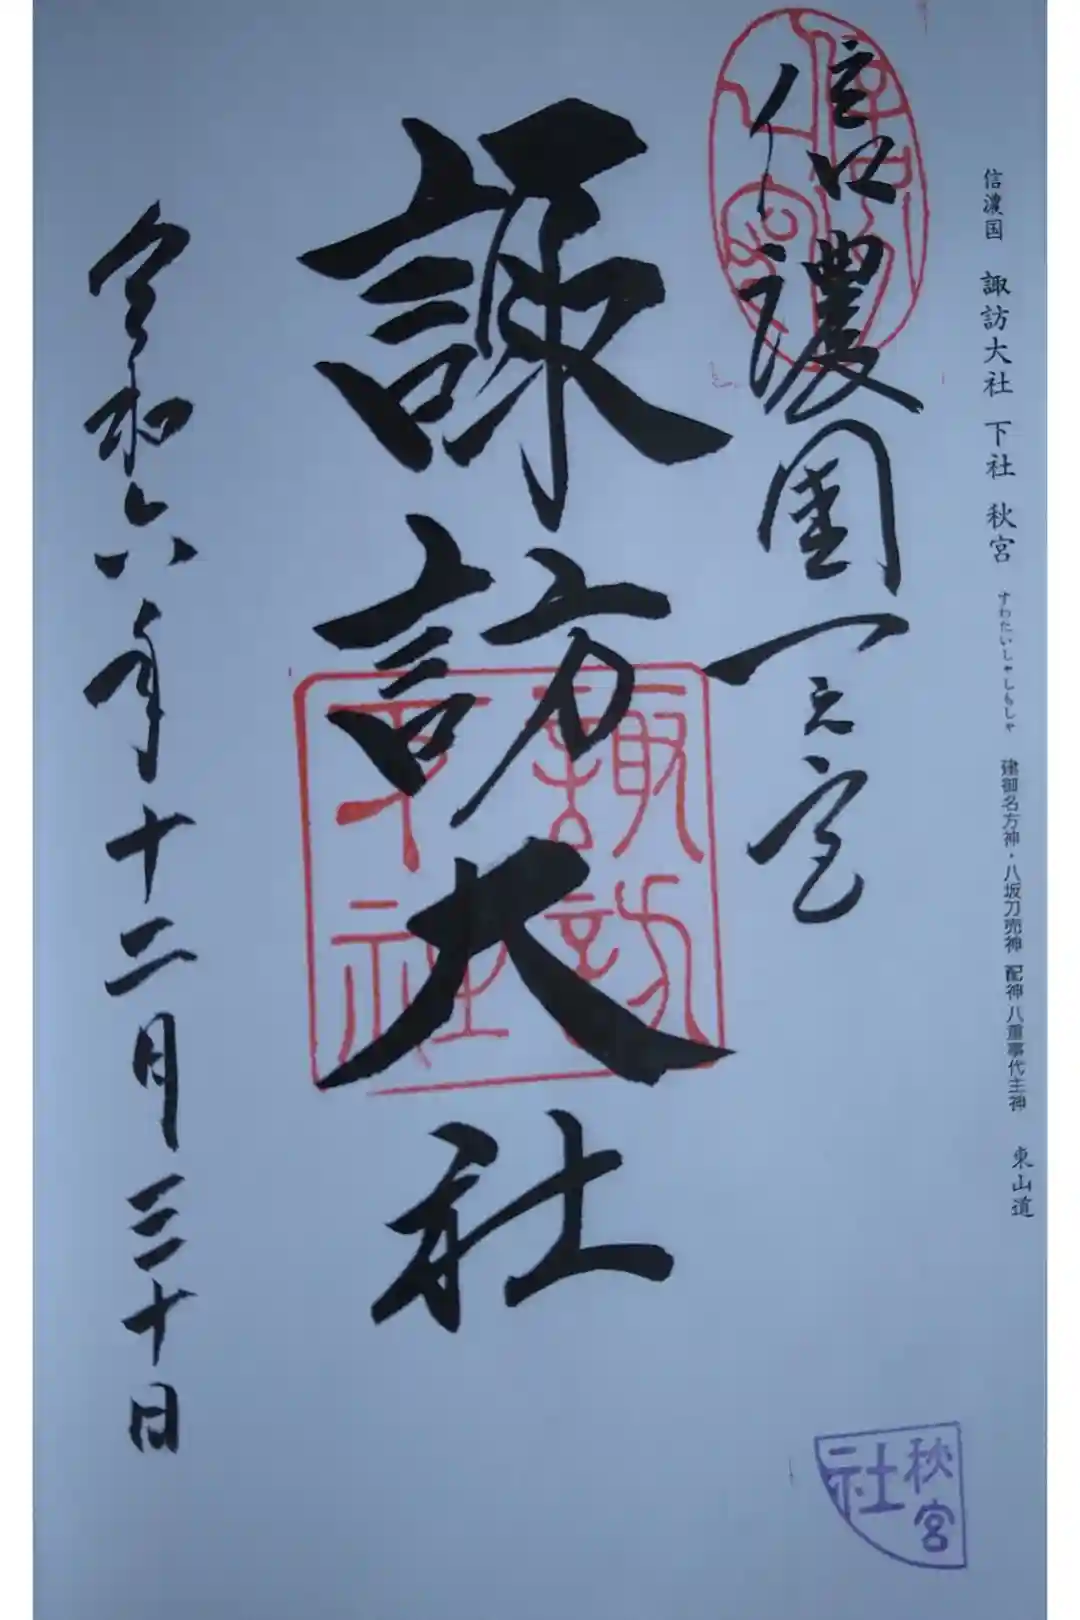 信濃国 諏訪大社 下社 秋宮 すわたいしゃしもしゃ 建御名方神・八坂刀売神 配神 八重事代主神 東山道
信濃國一之宮
諏訪大社
令和六年十二月三十日
諏訪
秋宮
社